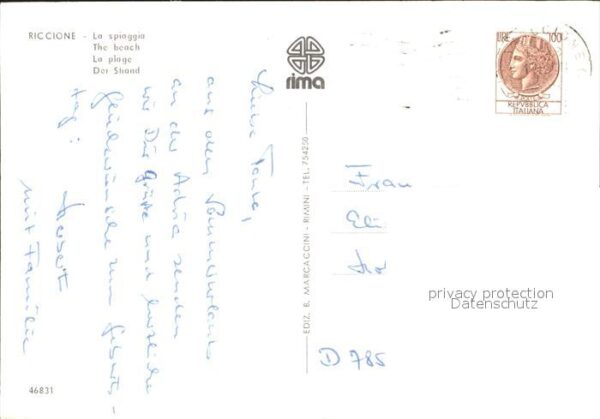 RICCIONE - La spiaggia
The beach
La plage
Der Strand
rima
LIRE 100
REPVBBLICA
ITALIANA
Liebe
aus dem Sommerurlaub
an der Adria senden
wir Dir Grüße und herzliche
Glückwünsche zum Geburts-
tag!
Herbert
mit Familie
EDIZ. B. MARCACCINI - RIMINI - TEL. 754250
Frau
D 785
privacy protection
Datenschutz
46831